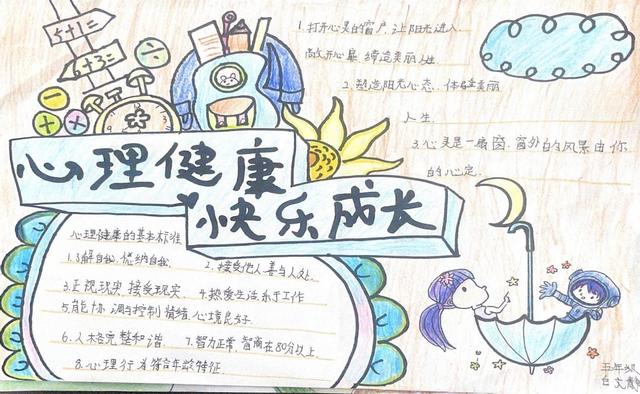 5+1=
6+3=
心理健康
快乐成长
1.打开心灵的窗户,让阳光进入.
敞开心扉,缔造美丽人生.
2.塑造阳光心态,体验美丽
人生.
3.心灵是一扇窗,窗外的风景由你
的心定.
心理健康的基本标准
1.了解自我,悦纳自我.
2.接受他人,善与人处.
3.正视现实,接受现实.
4.热爱生活,乐于工作
5.能协调与控制情绪,心境良好.
6.人格完整和谐
7.智力正常,智商在80分以上.
8.心理行为符合年龄特征.
五年级
白文